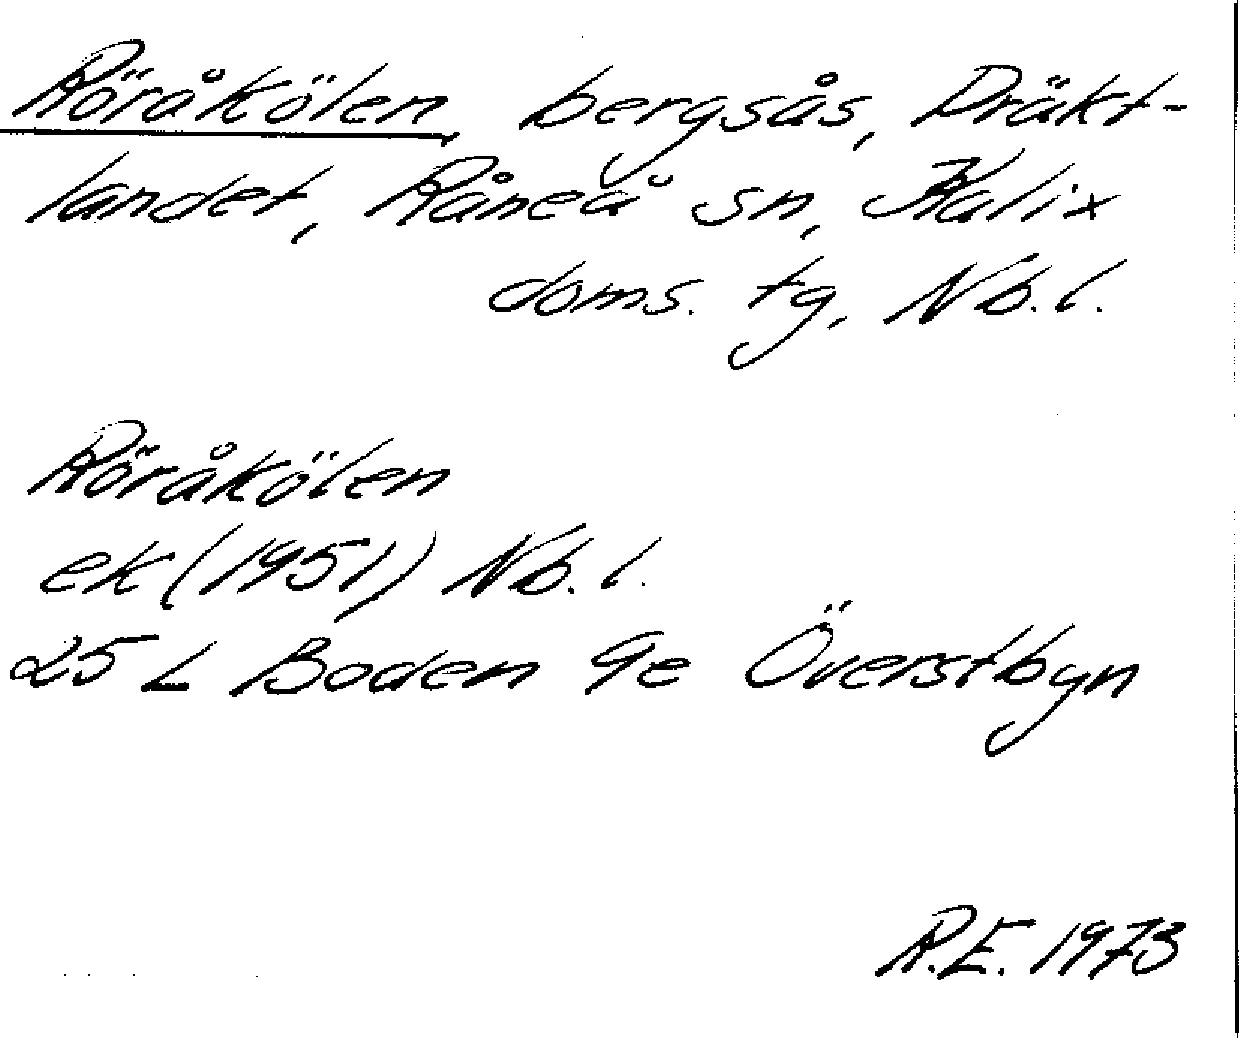 Röråkölen, bergsås, Dräkt-
landet, Råneå sn, Kalix
doms. tg, Nb.l.
Röråkölen
ek (1951) Nb.l.
25 L Boden 9e Överstbyn
R.E. 1973